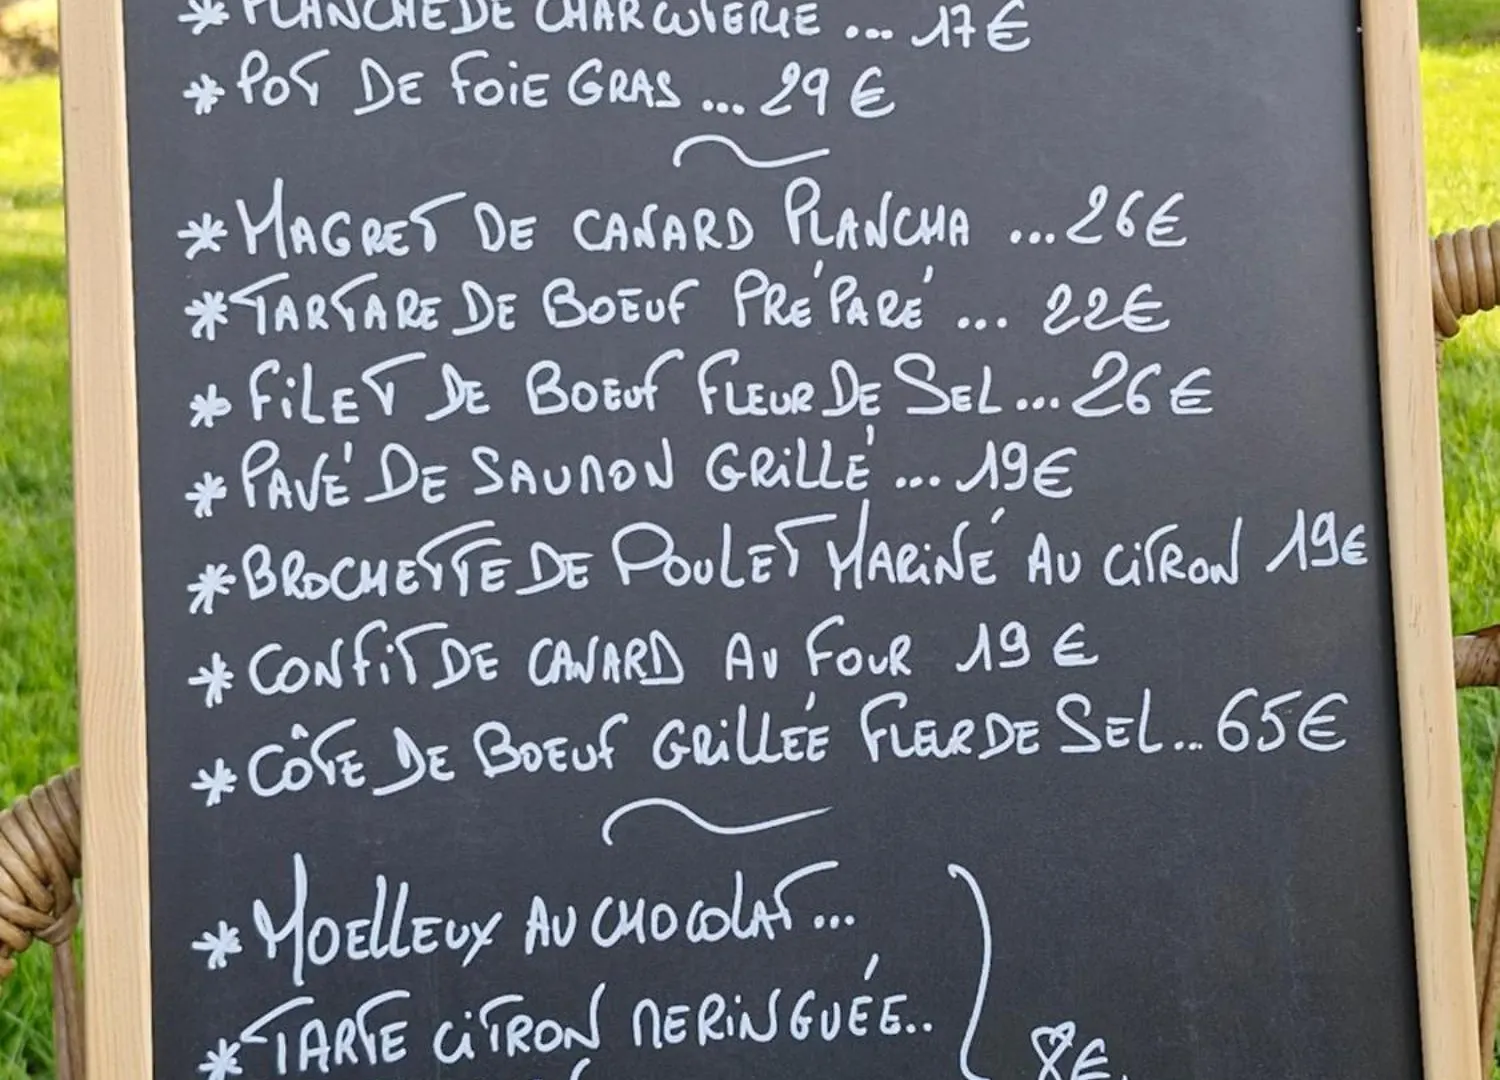 * PLANCHE DE CHARCUTERIE ... 17€
* POT DE FOIE GRAS ... 29€
* MAGRET DE CANARD PLANCHA ... 26€
* TARTARE DE BOEUF PRÉPARÉ ... 22€
* FILET DE BOEUF FLEUR DE SEL ... 26€
* PAVÉ DE SAUMON GRILLÉ ... 19€
* BROCHETTE DE POULET MARINÉ AU CITRON 19€
* CONFIT DE CANARD AU FOUR 19€
* CÔTE DE BOEUF GRILLÉE FLEUR DE SEL ... 65€
* MOELLEUX AU CHOCOLAT ...
* TARTE CITRON MERINGUÉE..
8€